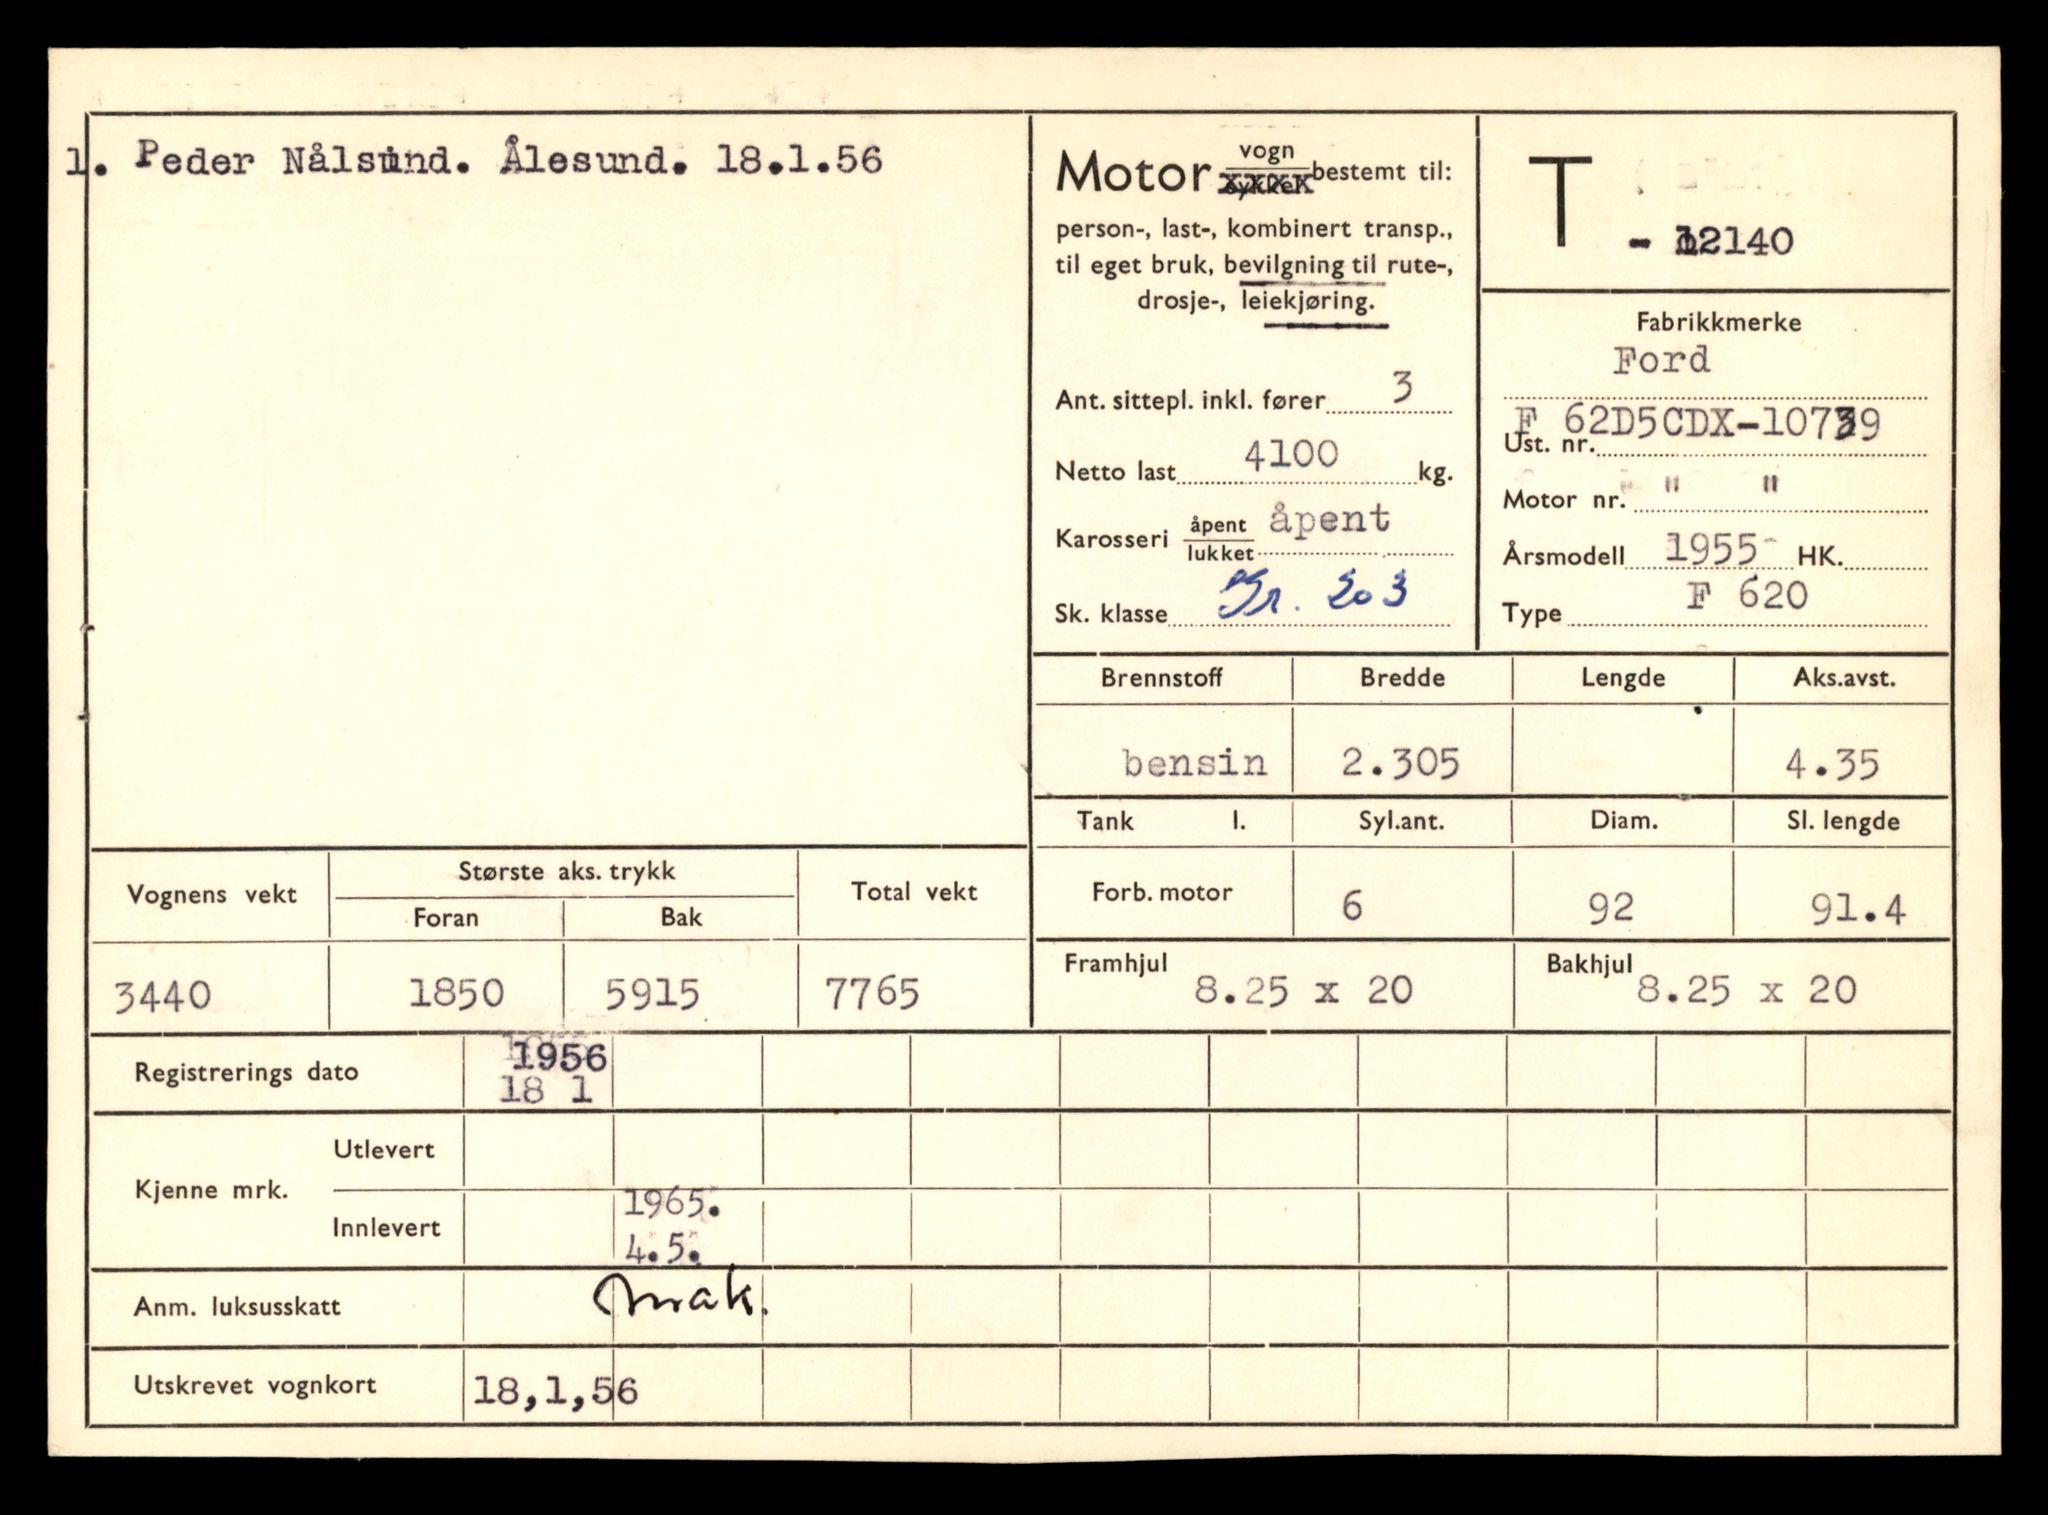 1. Peder Nålsund. Ålesund. 18.1.56
Motor vogn sykkel bestemt til:
person-, last-, kombinert transp.,
til eget bruk, bevilgning til rute-,
drosje-, leiekjøring.
Ant. sittepl. inkl. fører 3
Netto last 4100 kg.
Karosseri åpent lukket åpent
Sk. klasse Gr. 203
T - 12140
Fabrikkmerke
Ford
Ust. nr. F 62D5CDX-10739
Motor nr. " "
Årsmodell 1955 HK.
Type F 620
Brennstoff Bredde Lengde Aks.avst.
bensin 2.305 4.35
Tank l. Syl.ant. Diam. Sl. lengde
Forb. motor 6 92 91.4
Framhjul 8.25 x 20 Bakhjul 8.25 x 20
Vognens vekt Største aks. trykk Total vekt
Foran Bak
3440 1850 5915 7765
Registrerings dato 1956
18 1
Kjenne mrk. Utlevert
Innlevert 1965.
4.5.
Anm. luksusskatt
Utskrevet vognkort 18,1,56